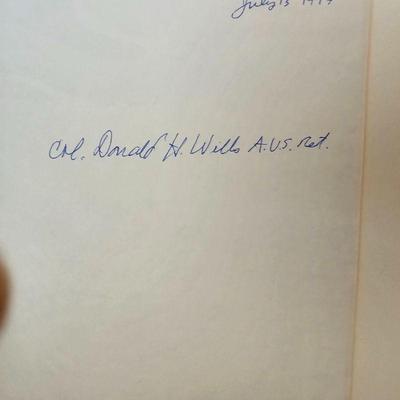 July 13 1977
Col. Donald H. Wills A.U.S. Ret.